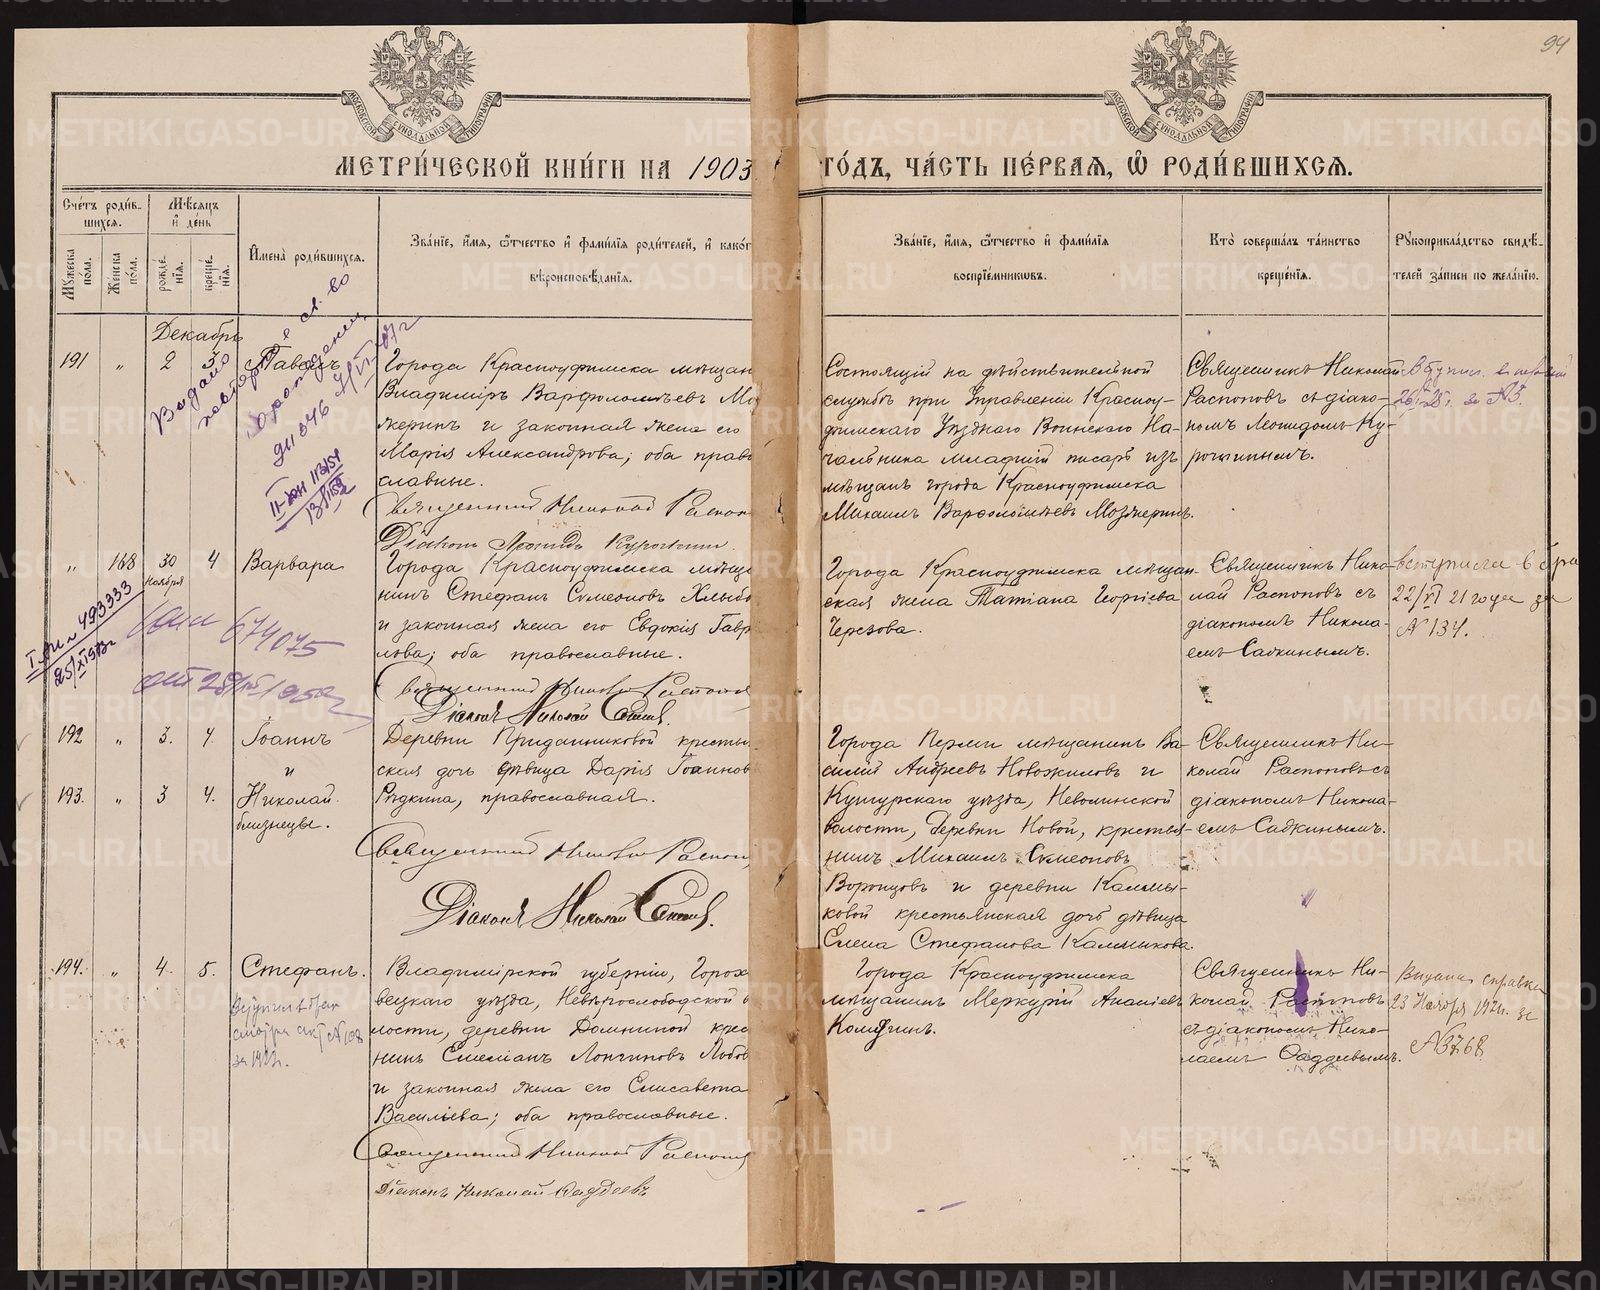 94
МОСКОВСКОЙ СУНОДАЛЬНОЙ ТИПОГРАФІИ
МОСКОВСКОЙ СУНОДАЛЬНОЙ ТИПОГРАФІИ
МЕТРИ́ЧЕСКОЙ КНИ́ГИ НА 1903 ГО́ДЪ, ЧА́СТЬ ПЕ́РВАѦ, Ѽ РОДИ́ВШИХСѦ.
Сче́тъ роди́в-
шихсѧ.
Мѣ́сѧцъ
и҆ де́нь
Мꙋ́жеска по́ла.
Же́нска по́ла.
рожде́-
нїѧ.
креще́-
нїѧ.
И҆мена̀ роди́вшихсѧ.
Зва́нїе, и҆́мѧ, ѻ҆́тчество и҆ фами́лїѧ роди́телей, и҆ како́г
вѣроисповѣ́данїѧ.
Зва́нїе, и҆́мѧ, ѻ҆́тчество и҆ фами́лїѧ
воспрїе́мникѡвъ.
Кто̀ соверша́лъ та́инство
креще́нїѧ.
Рꙋкоприкла́дство свидѣ́-
телей за́писи по жела́нїю.
Декабрь
191 " 2 3 Павелъ
Города Красноуфимска мѣщан
Владиміръ Варѳоломѣевъ Мо
жеринъ и законная жена его
Марія Александрова; оба право
славные.
Священникъ Николай Распоп
Діаконъ Леонидъ Курочкинъ
Состоящій на дѣйствительной
службѣ при Управленіи Красноу-
фимскаго Уѣзднаго Воинскаго На-
чальника младшій писарь изъ
мѣщанъ города Красноуфимска
Михаилъ Варѳоломѣевъ Мозжеринъ.
Священникъ Николай
Распоповъ съ діако-
номъ Леонидомъ Ку-
рочкинымъ.
Выдано
повторное св. во
о рождении
" 168 30 ноября 4 Варвара
Города Красноуфимска мѣща
нинъ Стефанъ Сѵмеоновъ Хлыбо
и законная жена его Евдокія Гавр
лова; оба православные.
Священникъ Николай Распопов
Діаконъ Николай Садкинъ.
Города Красноуфимска мѣщан-
ская жена Татіана Георгіева
Черезова.
Священникъ Нико-
лай Распоповъ съ
діакономъ Никола-
емъ Садкинымъ.
вступила в бра
22/VI 21 года за
N 134.
I 493333
674075
192 " 3. 4. Іоаннъ
и
193. " 3 4. Николай
близнецы.
Деревни Приданниковой крестья
ская дочь дѣвица Дарія Іоаннов
Рѣдкина, православная.
Священникъ Николай Распоп
Діаконъ Николай Садкинъ.
Города Перми мѣщанинъ Ва-
силій Андреевъ Новожиловъ и
Кунгурскаго уѣзда, Неволинской
волости, деревни Новой, крестья-
нинъ Михаилъ Сѵмеоновъ
Воронцовъ и деревни Калмы-
ковой крестьянская дочь дѣвица
Елена Стефанова Калмыкова.
Священникъ Ни-
колай Распоповъ съ
діакономъ Никола-
емъ Садкинымъ.
194. " 4 5. Стефанъ.
Владимірской губерніи, Горохо
вецкаго уѣзда, Невѣрослободской во
лости, деревни Домниной крес
нинъ Емеліанъ Лонгиновъ Лобов
и законная жена его Елисавета
Васильева; оба православные.
Священникъ Николай Распопов
Діаконъ Николай Ѳаддеевъ
Города Красноуфимска
мѣщанинъ Меркурій Ананіевъ
Священникъ Ни-
колай Распоповъ
съ діакономъ Нико-
лаемъ Ѳаддеевымъ.
Выдана справка
23 Ноября 192 г. за
N 3768
METRIKI.GASO-URAL.RU